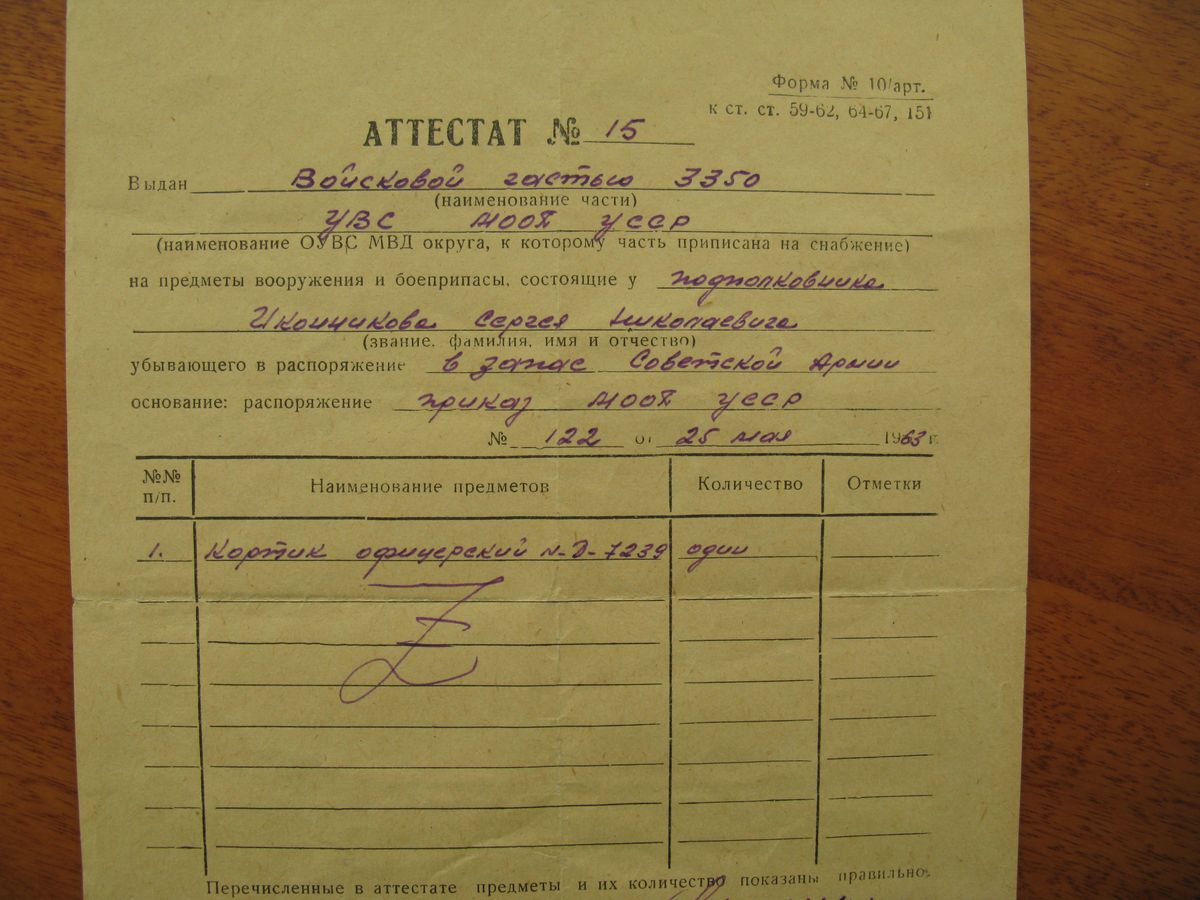 Форма № 10/арт.
к ст. ст. 59-62, 64-67, 151
АТТЕСТАТ № 15
Выдан Войсковой частью 3350
(наименование части)
УВС МООП УССР
(наименование ОУВС МВД округа, к которому часть приписана на снабжение)
на предметы вооружения и боеприпасы, состоящие у подполковника
Иконникова Сергея Николаевича
(звание, фамилия, имя и отчество)
убывающего в распоряжение в запас Советской Армии
основание: распоряжение приказ МООП УССР
№ 122 от 25 мая 1963 г.
№№ п/п. Наименование предметов Количество Отметки
1. Кортик офицерский №-Д-7239 один
Перечисленные в аттестате предметы и их количество показаны правильно.